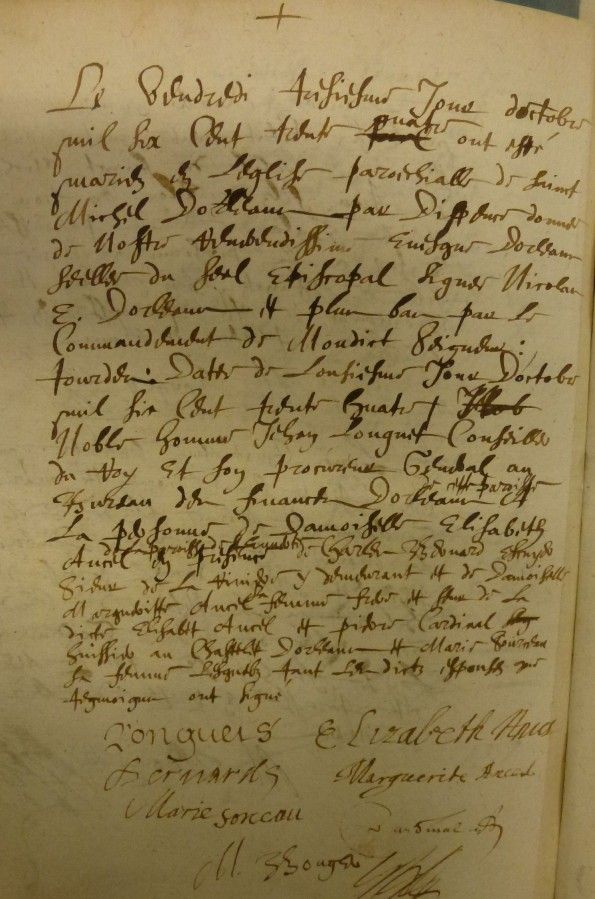 Le Vendredi tresiesme Jour doctobre
mil six Cent trente quatre ont esté
mariez en Leglise parochialle de sainct
Michel Dorleans par Dispence donnee
de Nostre Reverendissime Evesque Dorleans
seellee du seel Episcopal signee Nicolas
E. Dorleans et plus bas par Le
Commandement de Mondict Seigneur :
Jourdan. Datee de Lonsiesme Jour Doctobre
mil six Cent trente quatre
Noble homme Jehan Longuet Conseiller
du Roy Et son procureur General au
Bureau des finances Dorleans de cette paroisse Et
La personne de Damoiselle Elisabeth
Ancel de paroisse en presence de Charles Bernard
Sieur de La y demeurant et de Damoiselle
Marguerite Ancel sa femme frere et seur de La
dicte Elisabet Ancel et pierre Cardinal
huissier au Chastelet Dorleans et Marie
sa femme Lesquels tant Les dicts espousez que
tesmoigns ont signé
Longuets Elizabeth Ancel
Bernards Marguerite Ancel
Marie soreau
M.